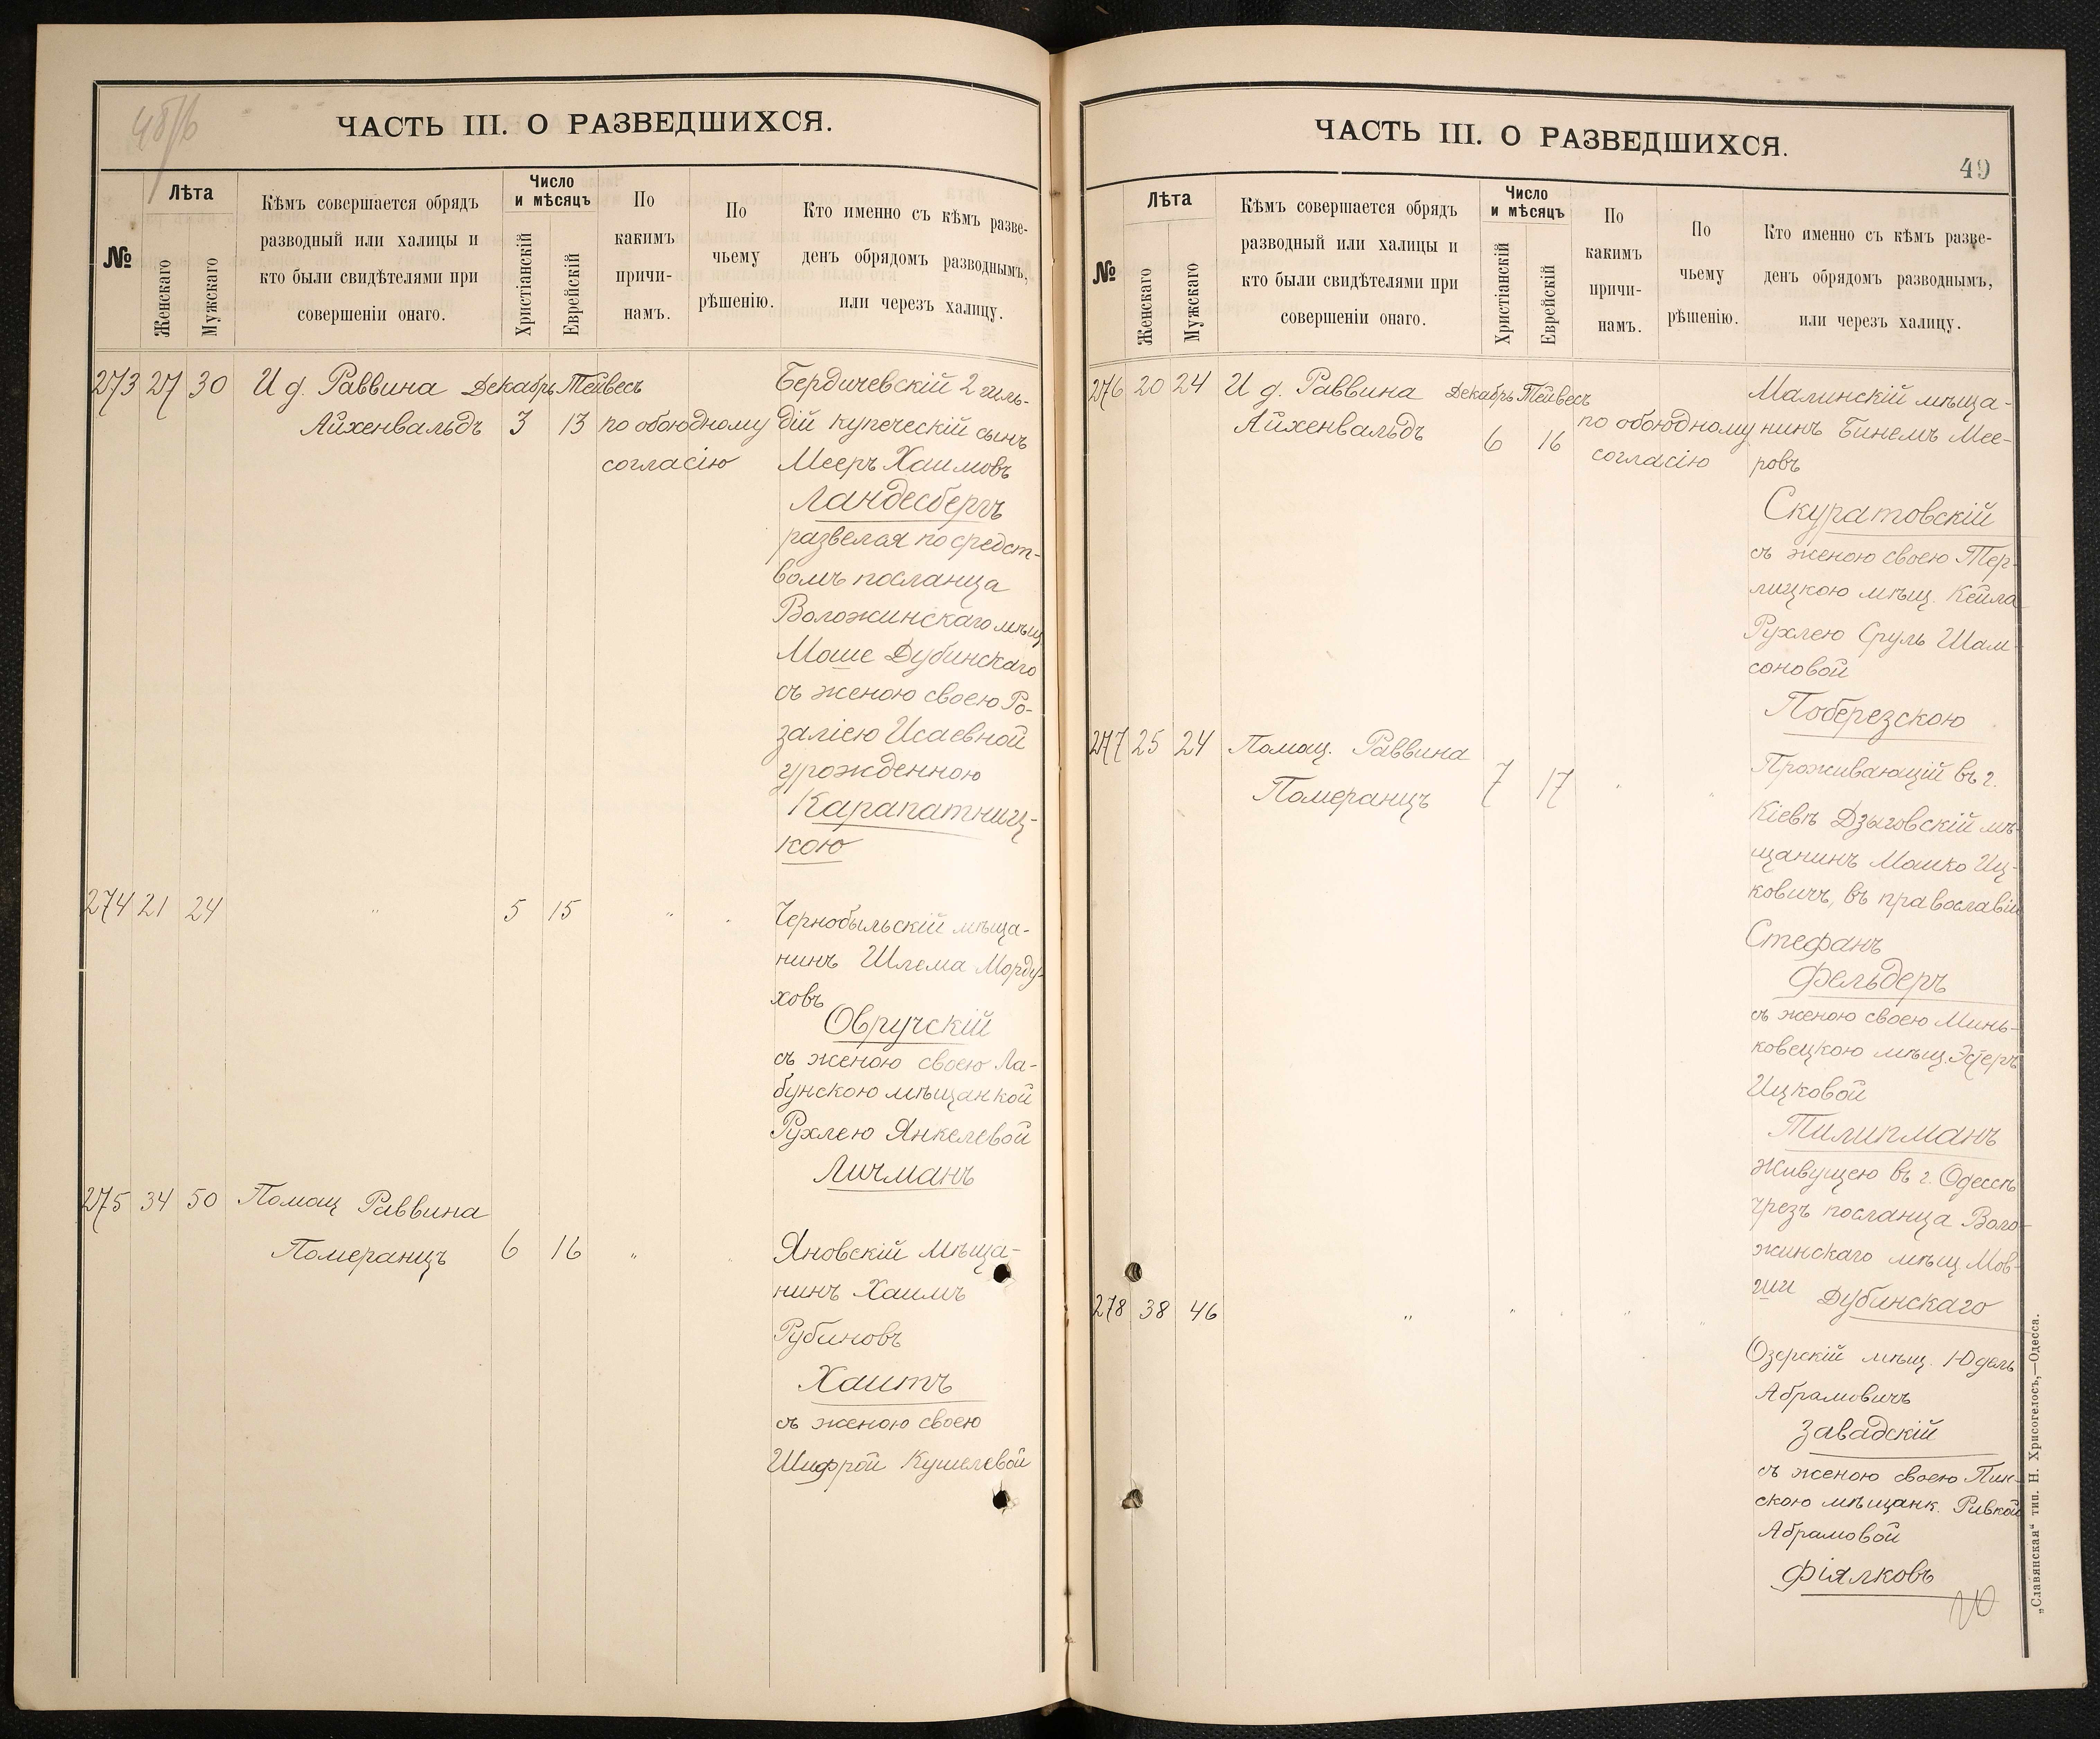 ЧАСТЬ III. О РАЗВЕДШИХСЯ.
№
Лѣта
Женскаго
Мужскаго
Кѣмъ совершается обрядъ
разводный или халицы и
кто были свидѣтелями при
совершеніи онаго.
Число
и мѣсяцъ
Христіанскій
Еврейскій
По
какимъ
причи-
намъ.
По
чьему
рѣшенію.
Кто именно съ кѣмъ разве-
денъ обрядомъ разводнымъ,
или черезъ халицу.
273 27 30 И д. Раввина Декабрь Тейвесъ Бердичевскій 2 гиль-
Айхенвальдъ 3 13 по обоюдному дій купеческій сынъ
согласію Мееръ Хаимовъ
Ландесбергъ
развелся посредст-
вомъ посланца
Воложинскаго мѣщ
Моше Дубинскаго
съ женою своею Ро-
заліею Исаевной
урожденною
Карапатниц-
кою
274 21 24 " 5 15 " " Чернобыльскій мѣща-
нинъ Шлема Морду-
ховъ
Овручскій
съ женою своею Ла-
бунскою мѣщанкой
Рухлею Янкелевой
Личманъ
275 34 50 Помощ Раввина
Померанцъ 6 16 " " Яновскій мѣща-
нинъ Хаимъ
Рубиновъ
Хаитъ
съ женою своею
Шифрой Кушелевой
ЧАСТЬ III. О РАЗВЕДШИХСЯ.
49
№
Лѣта
Женскаго
Мужскаго
Кѣмъ совершается обрядъ
разводный или халицы и
кто были свидѣтелями при
совершеніи онаго.
Число
и мѣсяцъ
Христіанскій
Еврейскій
По
какимъ
причи-
намъ.
По
чьему
рѣшенію.
Кто именно съ кѣмъ разве-
денъ обрядомъ разводнымъ,
или черезъ халицу.
276 20 24 И д. Раввина Декабрь Тейвесъ Малинскій мѣща-
Айхенвальдъ 6 16 по обоюдному нинъ Бинемъ Мее-
согласію ровъ
Скуратовскій
съ женою своею Тер-
лицкою мѣщ. Кейла
Рухлею Сруль Шам-
соновой
Поберезскою
277 25 24 Помощ. Раввина
Померанцъ 7 17 " " Проживающій въ г.
Кіевѣ Дзыговскій мѣ-
щанинъ Мошко Иц-
ковичъ, въ православіи
Стефанъ
Фельдеръ
съ женою своею Минь-
ковецкою мѣщ. Эстеръ
Ицковой
Тилипманъ
Живущею въ г. Одессѣ
чрезъ посланца Воло-
жинскаго мѣщ Мов-
ши Дубинскаго
278 38 46 " " " " "
Озерскій мѣщ. Юдель
Абрамовичъ
Завадскій
съ женою своею Пин-
скою мѣщанк. Ривкой
Абрамовой
Фіялковъ
„Славянская“ тип. Н. Хрисогелосъ,—Одесса.